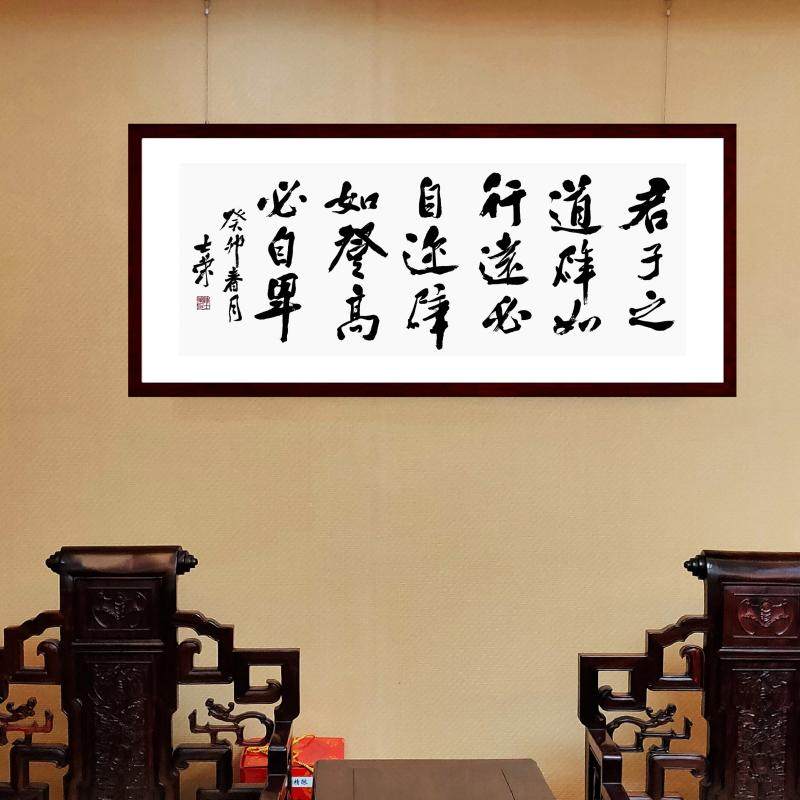 君子之
道辟如
行遠必
自迩辟
如登高
必自卑
癸卯春月
士荣